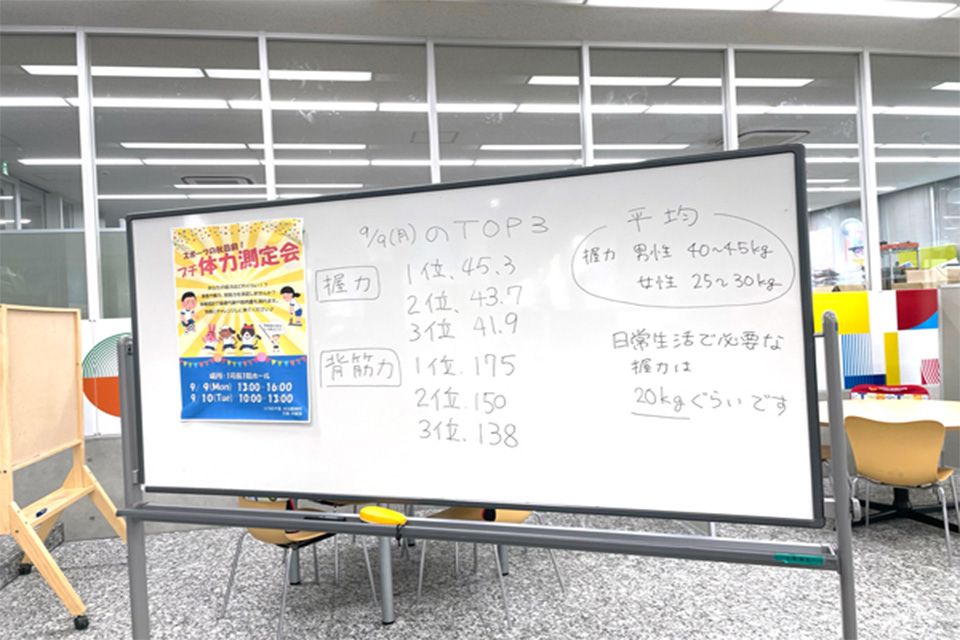 スポーツの秋目前！
プチ体力測定会
場所：1号館1階ホール
9/ 9(Mon) 13:00-16:00
9/ 10(Tue) 10:00-13:00
9/9(月)のTOP3
握力
1位、45.3
2位、43.7
3位 41.9
背筋力
1位、175
2位、150
3位、138
平均
握力 男性 40～45kg
女性 25～30kg
日常生活で必要な
握力は
20kgぐらいです